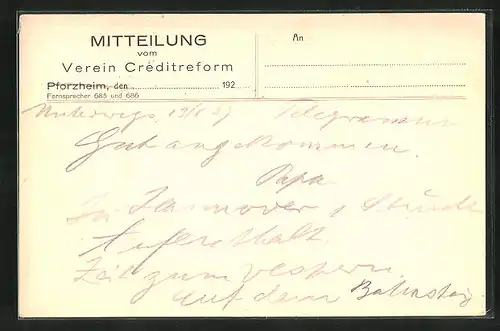 MITTEILUNG
vom
Verein Creditreform
Pforzheim, den 192
Fernsprecher 685 und 686
An
Unterwegs, Telegramm
Gut angekommen.
Papa
In Hannover 1 Stunde
Aufenthalt.
Zeit zum vespern
auf dem Bahnsteig